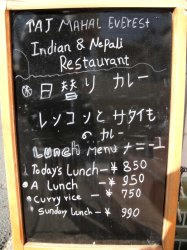 TAJ MAHAL EVEREST
Indian & Nepali
Restaurant
日替り カレー
レンコンと サタイモ
の カレー
Lunch Menu メニュー
Today's Lunch-¥ 850
A Lunch -¥ 950
Curry rice -¥ 750
Sunday Lunch -¥ 990